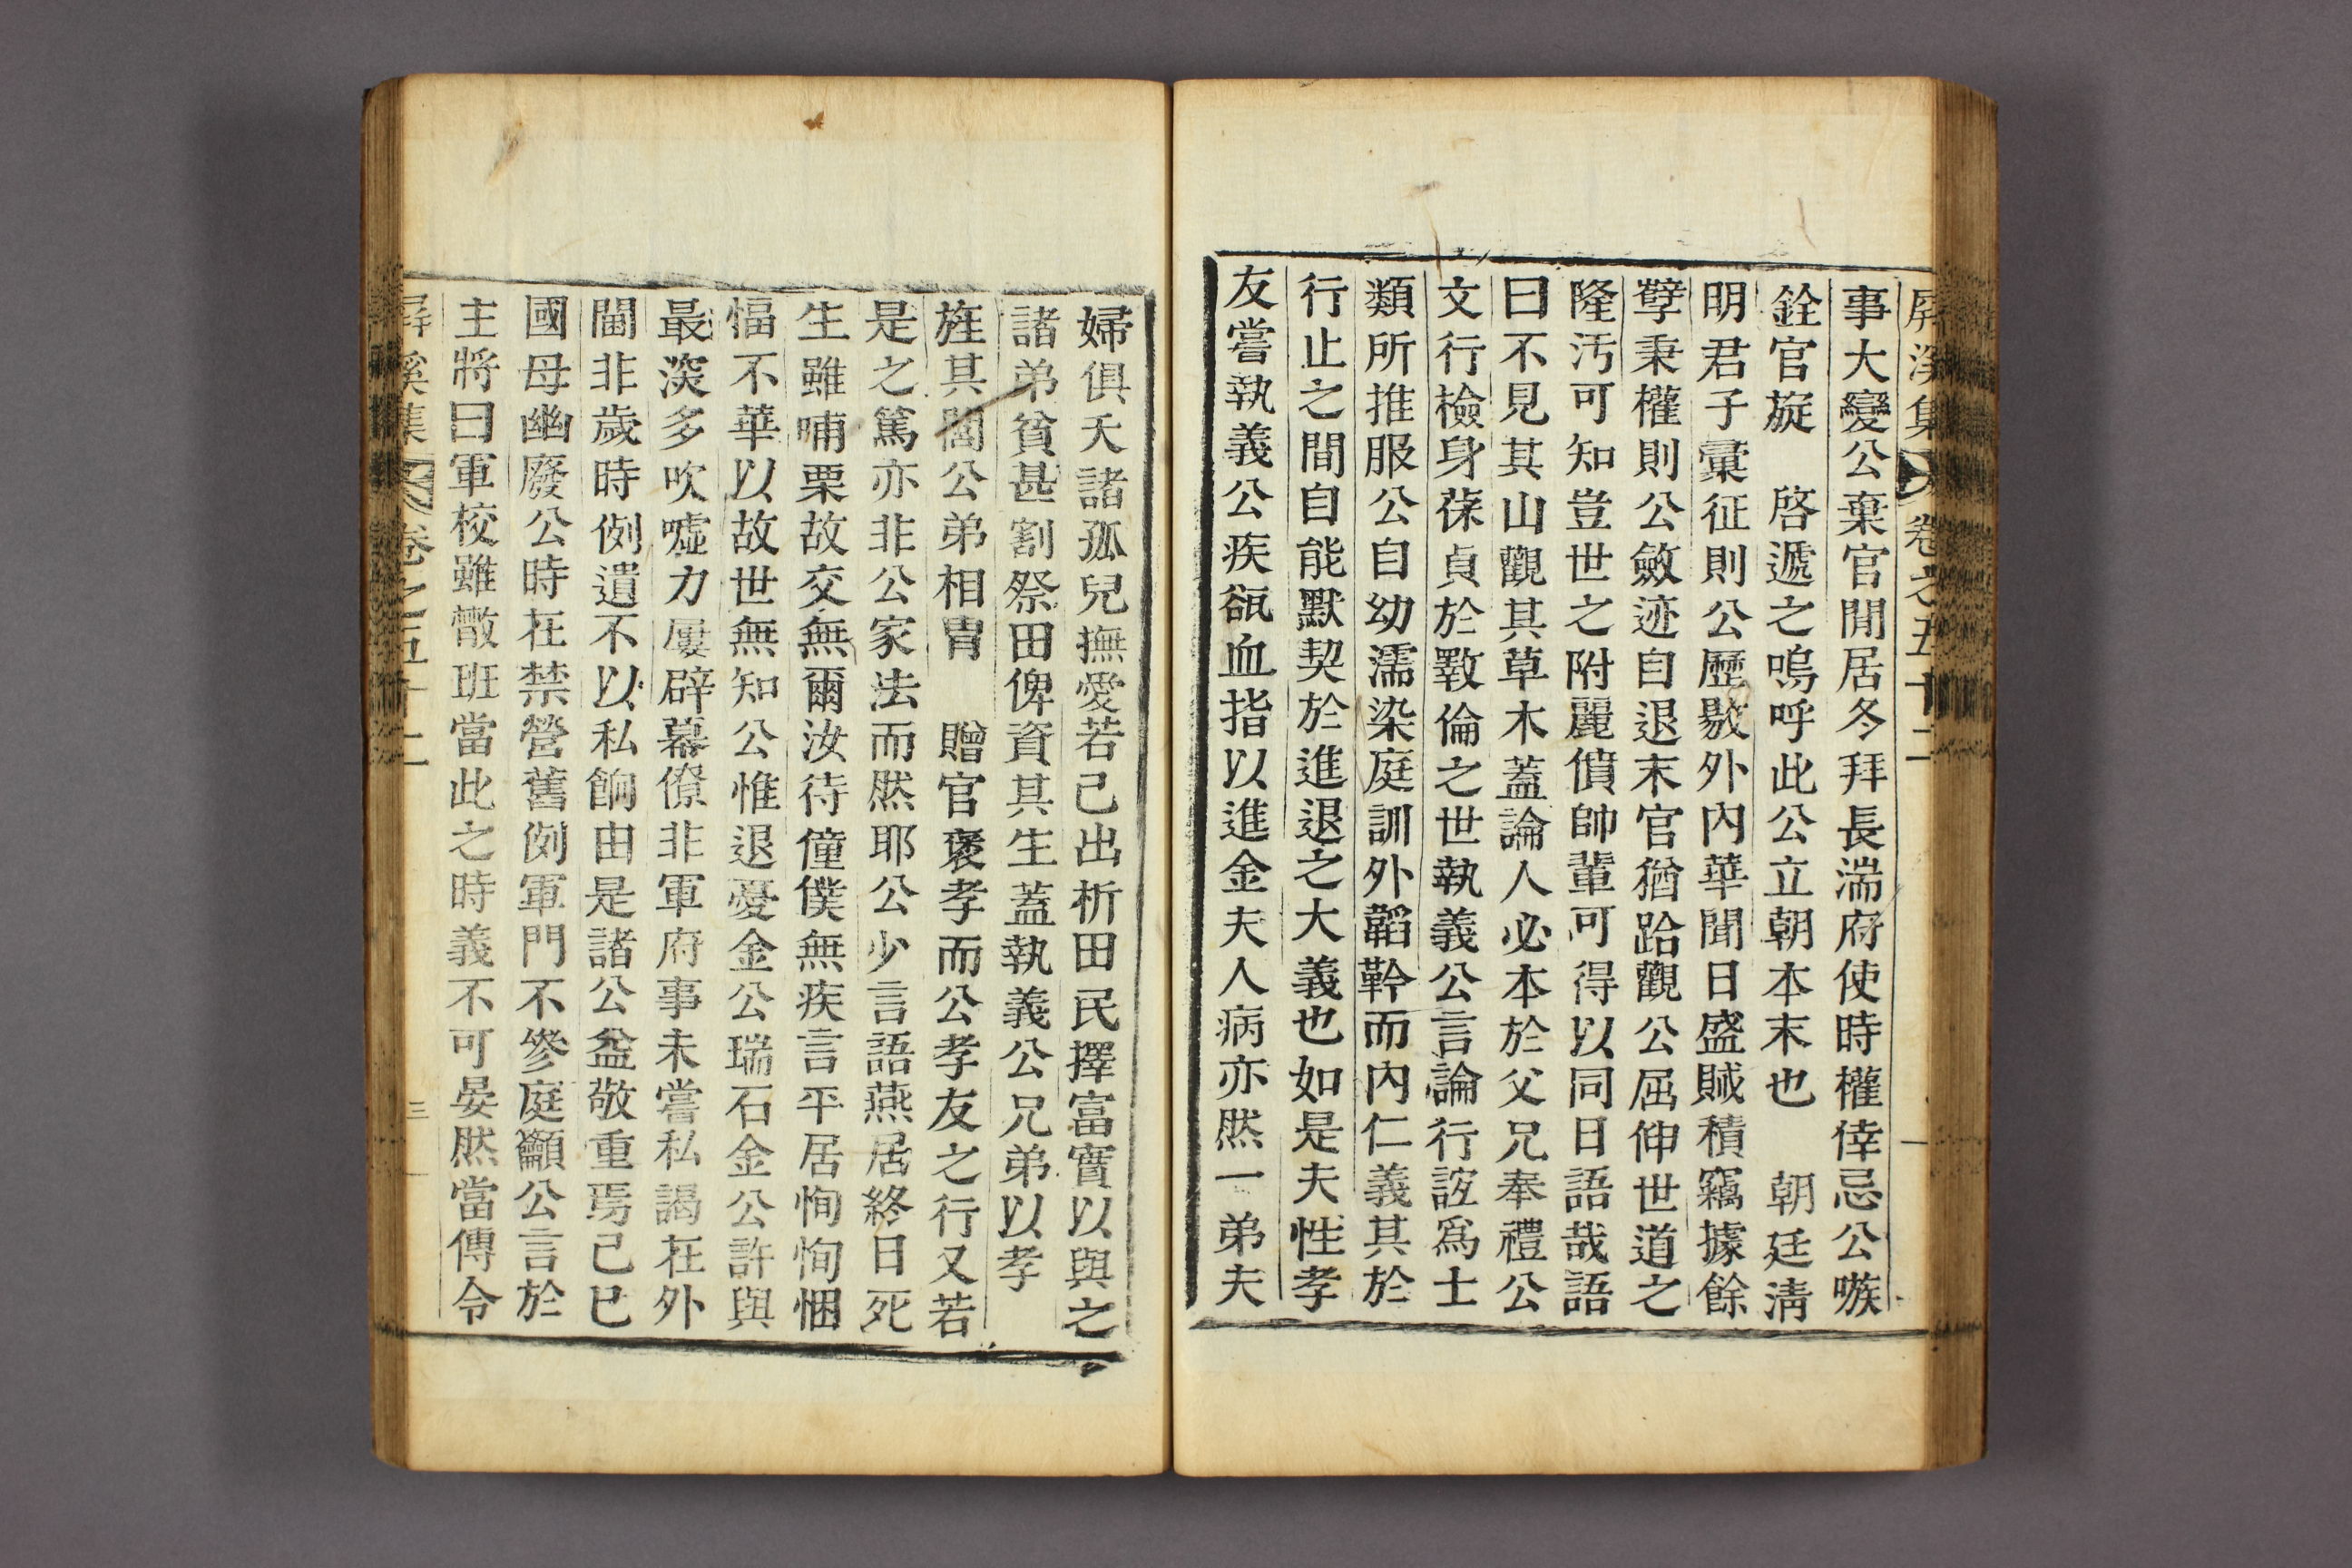 屏溪集 卷之五十二
事大變公棄官閒居冬拜長湍府使時權倖忌公嗾
銓官旋 啓遞之嗚呼此公立朝本末也 朝廷淸
明君子彙征則公歷敭外內華聞日盛賊積竊據餘
孼秉權則公斂迹自退末官猶跲觀公屈伸世道之
隆汚可知豈世之附麗僨帥輩可得以同日語哉語
曰不見其山觀其草木蓋論人必本於父兄奉禮公
文行檢身葆貞於斁倫之世執義公言論行誼爲士
類所推服公自幼濡染庭訓外韜鞈而內仁義其於
行止之間自能默契於進退之大義也如是夫性孝
友嘗執義公疾瓻血指以進金夫人病亦然一弟夫
婦俱夭諸孤兒撫愛若己出析田民擇富實以與之
諸弟貧甚割祭田俾資其生蓋執義公兄弟以孝
旌其閭公弟相胄 贈官褒孝而公孝友之行又若
是之篤亦非公家法而然耶公少言語燕居終日死
生雖哺栗故交無爾汝待僮僕無疾言平居恂恂悃
愊不華以故世無知公惟退憂金公瑞石金公許與
最深多吹噓力屢辟幕僚非軍府事未嘗私謁在外
閫非歲時例遺不以私餉由是諸公益敬重焉己巳
國母幽廢公時在禁營舊例軍門不參庭籲公言於
主將曰軍校雖儆班當此之時義不可晏然當傳令
屏溪集 卷之五十二 三